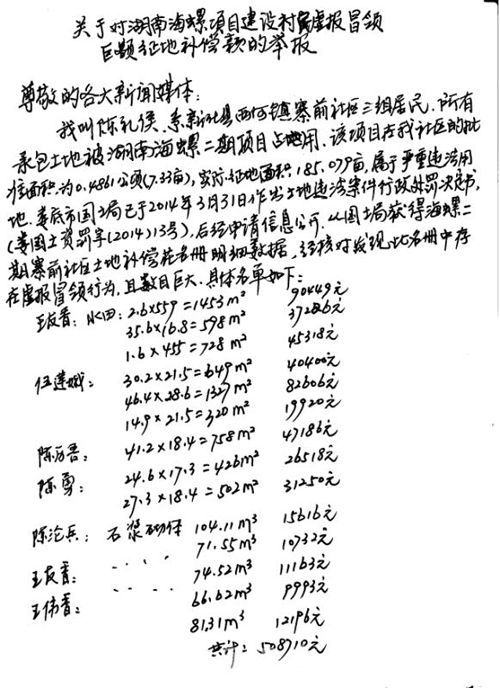 关于对湖南海螺项目建设村民虚报冒领
巨额征地补偿款的举报
尊敬的各大新闻媒体:
我叫陈礼侯,系新化县西河镇寨前社区三组居民,所有
承包土地被湖南海螺二期项目占地用,该项目在我社区的批
准面积为0.4861公顷(7.33亩),实际征地面积185.079亩,属于严重违法用
地,娄底市国土局已于2014年3月31日作出土地违法案件行政处罚决定书,
(娄国土资罚字(2014)13号),后经申请信息公开,从国土局获得海螺二
期寨前社区土地补偿花名册明细数据,经核对发现此名册中存
在虚报冒领行为,且数目巨大,具体名单如下:
王友香:水田:2.6×559=1453m² 90449元
35.6×16.8=598m² 37226元
1.6×455=728m² 45318元
伍莲娥: 30.2×21.5=649m² 40400元
46.4×28.6=1327m² 82606元
14.9×21.5=320m² 19920元
陈万吾: 41.2×18.4=758m² 47186元
陈勇: 24.6×17.3=426m² 26518元
27.3×18.4=502m² 31250元
陈沦兵:石浆砌体 104.11m³ 15616元
〃 71.55m³ 10732元
王友香: 〃 74.52m³ 11163元
王伟香: 〃 66.62m³ 9993元
81.31m³ 12196元
共计:508710元